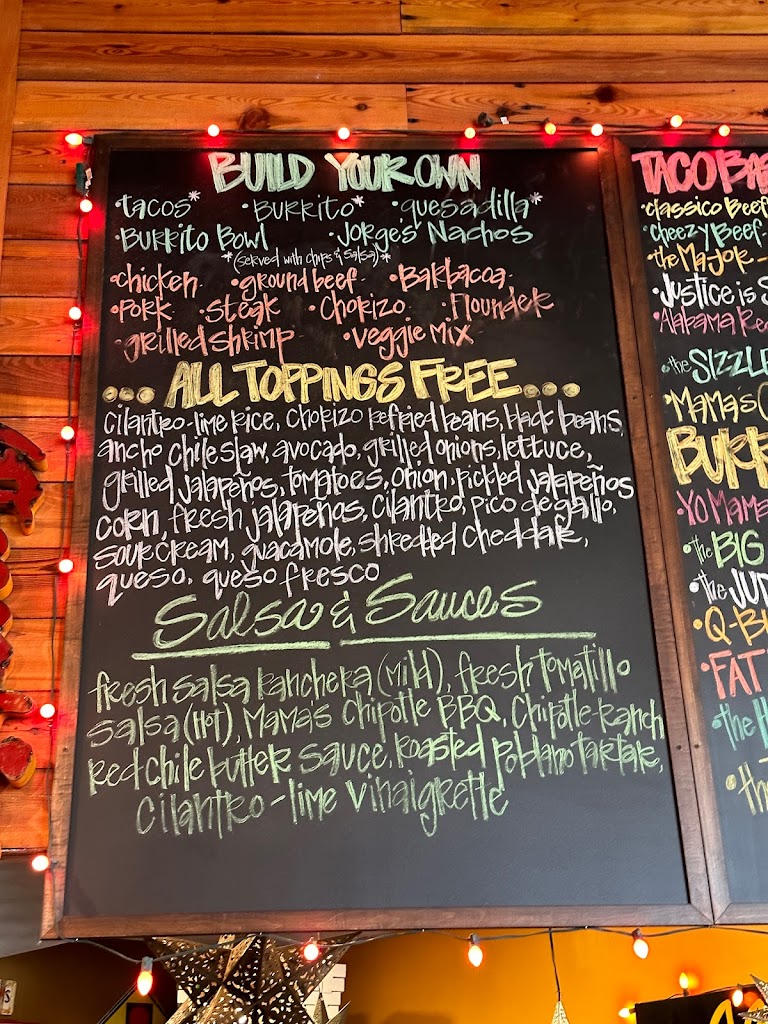 BUILD YOUR OWN
•tacos* •BURRito* •quesadilla*
•BURRito Bowl •JORge's Nachos
*(served with chips & salsa)*
•chicken •ground beef •BaRbacoa
•PoRk •steak •ChoRizo •FloundeR
•gRilled shRimp •veggie Mix
... All TOPPINGS FREE...
cilantRo-lime Rice, ChoRizo Refried beans, black beans,
ancho chile slaw, avocado, gRilled onions, lettuce,
gRilled jalapeños, tomatoes, onion, pickled jalapeños
coRn, fResh jalapeños, cilantRo, pico de gallo,
souR cReam, guacamole, shRedded cheddaR,
queso, queso fResco
Salsa & Sauces
fResh salsa RancheRa (Mild), fResh tomatillo
salsa (Hot), Mama's Chipotle BBQ, Chipotle-Ranch
Red chile butteR sauce, Roasted Poblano taRtaR,
cilantRo-lime vinaigRette
TACO BA
•classico Beef
•CheezyBeef-
•the MajoR-
•Justice is S
•Alabama Re
•the SIZZLE
•MaMa's
BURR
•YO MaMa
•the BIG
•the JUD
•Q-B
•FAT
•the H
•th